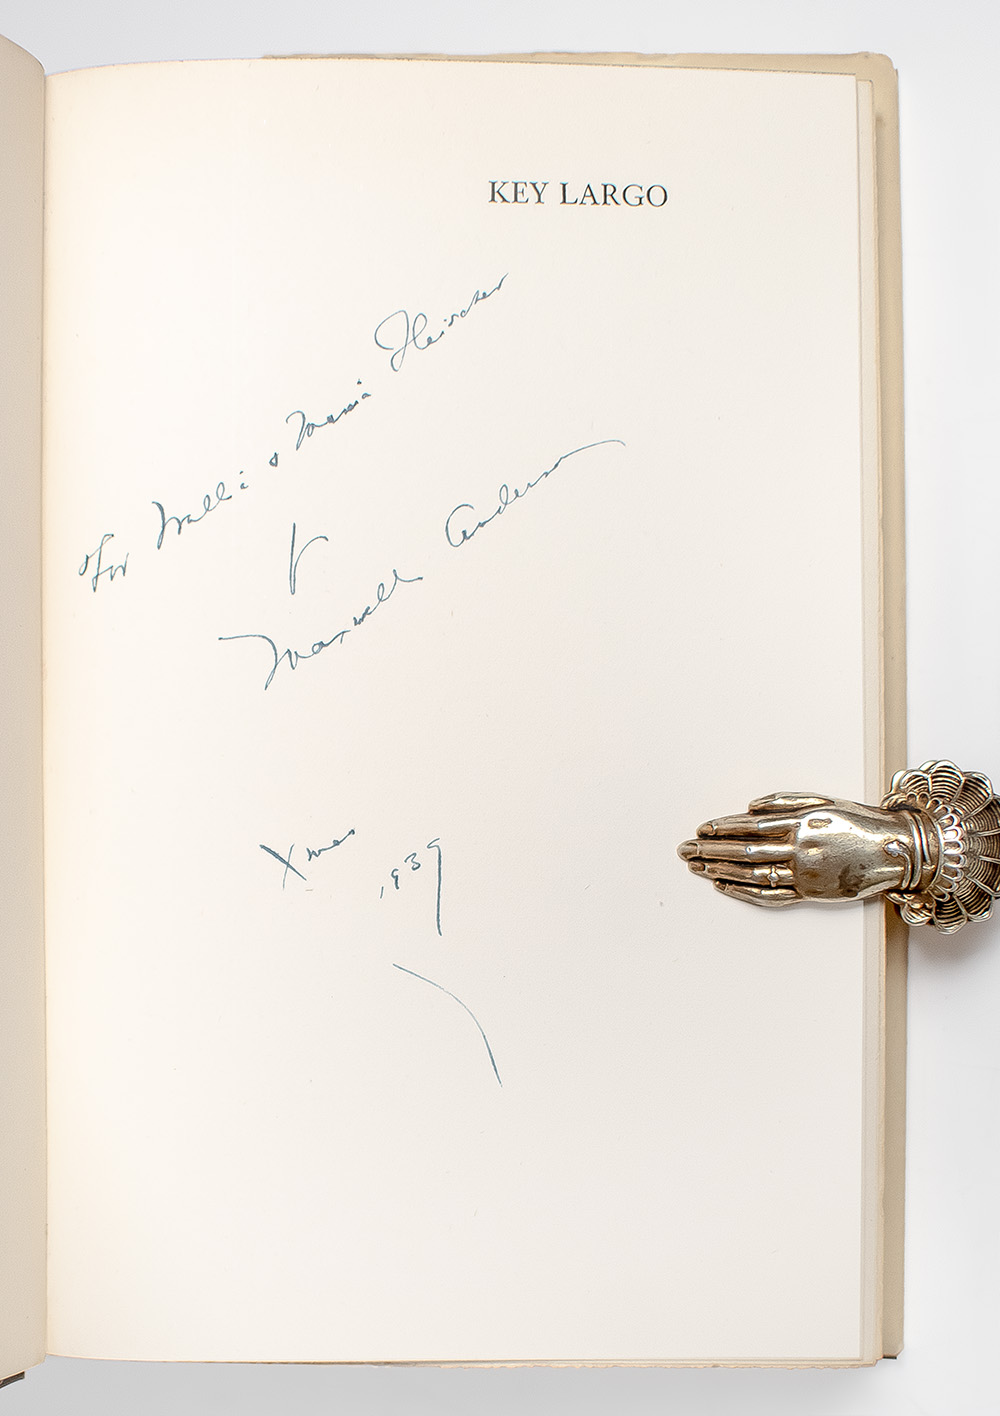 KEY LARGO
For Walli & Maria Fleischer
Maxwell Anderson
Xmas
1939